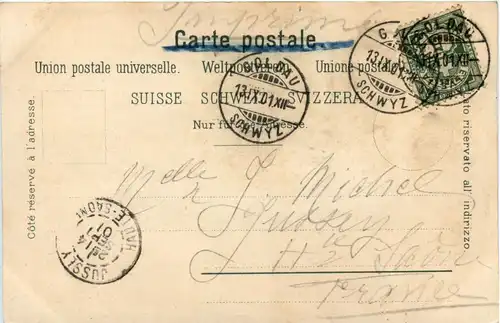 Imprimé
Carte postale.
Union postale universelle. Weltpostverein. Unione postale
SUISSE SCHWEIZ SVIZZERA
Nur für die Adresse.
Côté réservé à l'adresse.
Lato riservato all' indirizzo.
GOLDAU
13.IX.01.XII
SCHWYZ
GOLDAU
13.IX.01.XII
SCHWYZ
JUSSEY
HAUTE-SAONE
14
SEPT
01
Melle J. Michel
Jussey
Hte Saône
France